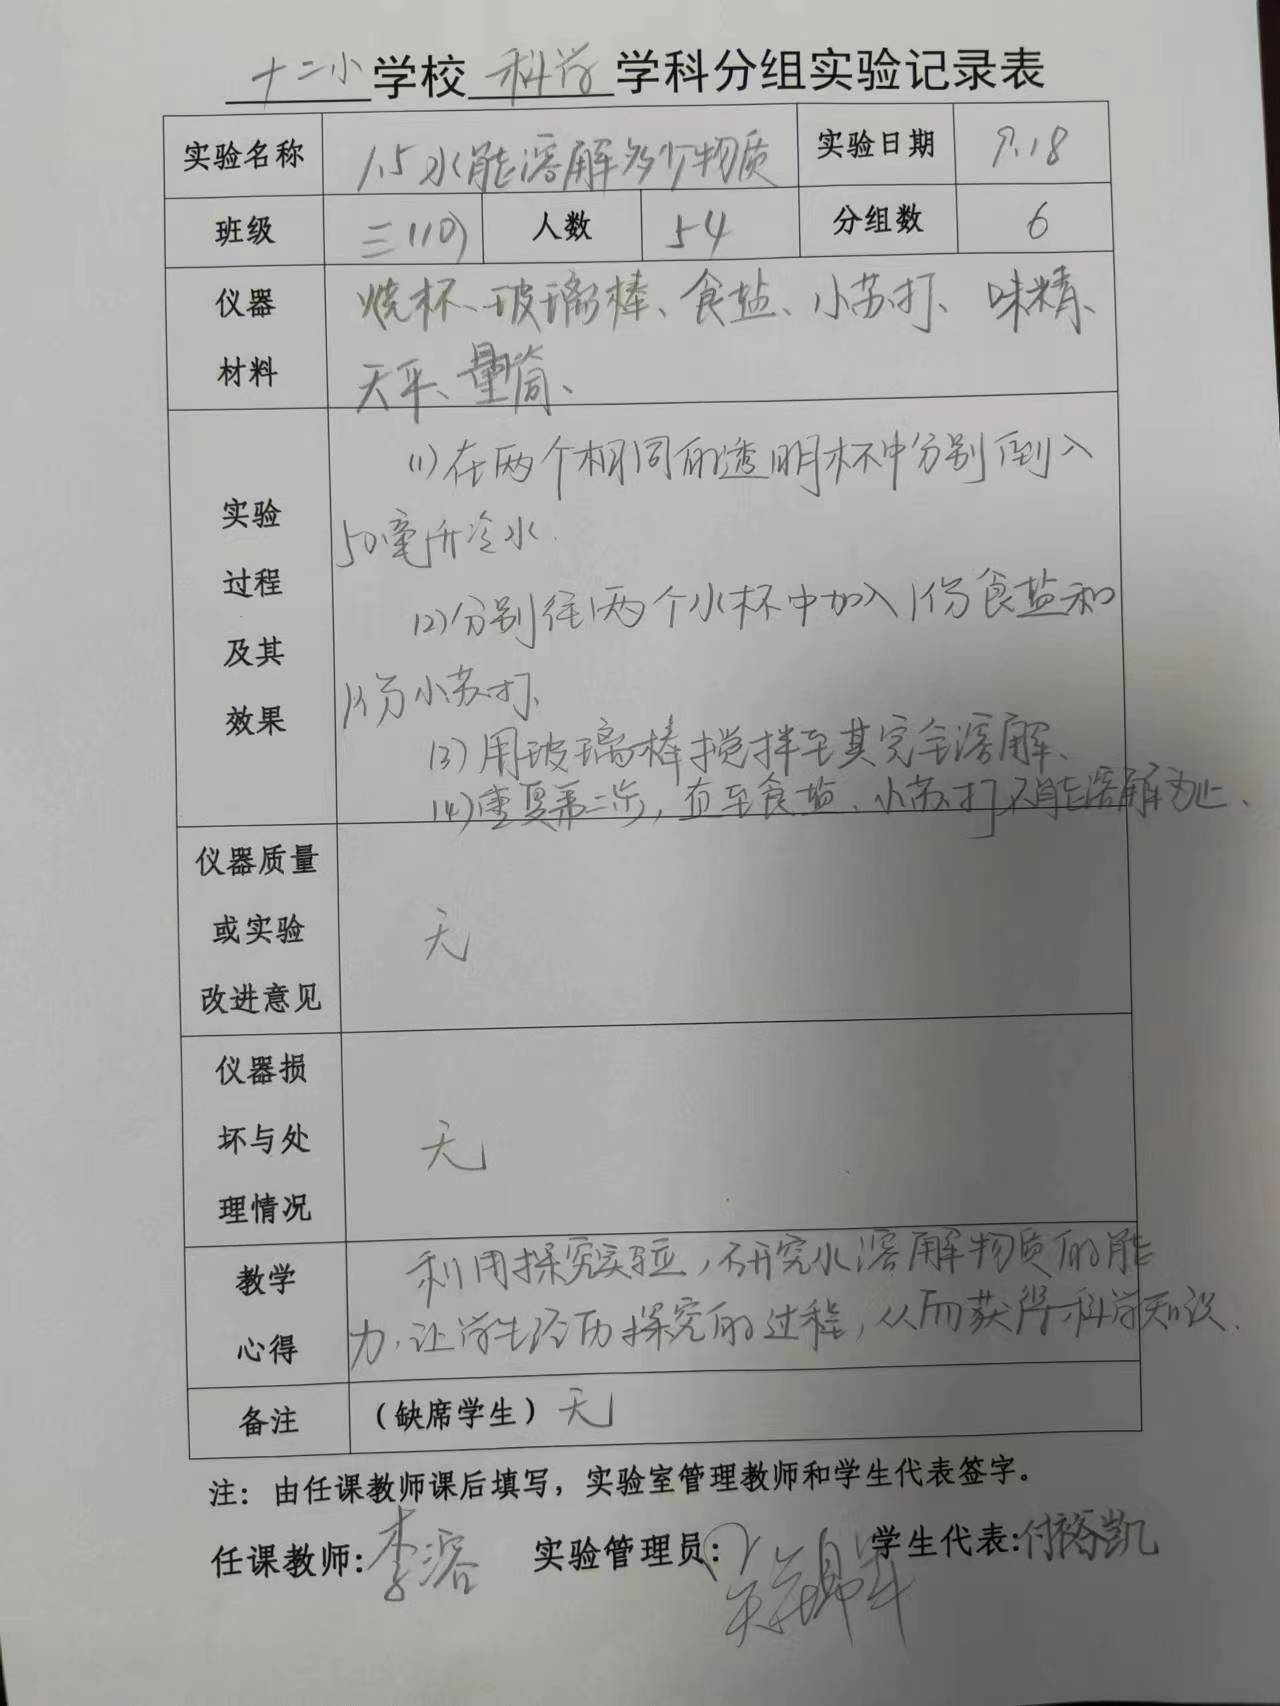 十二小学校 科学 学科分组实验记录表
实验名称 1.5水能溶解多少物质 实验日期 9.18
班级 三(10) 人数 54 分组数 6
仪器 烧杯、玻璃棒、食盐、小苏打、味精、
材料 天平、量筒、
(1)在两个相同的透明杯中分别倒入
实验
50毫升冷水.
过程
(2)分别往两个水杯中加入1份食盐和
及其
1份小苏打、
效果
(3)用玻璃棒搅拌至其完全溶解、
(4)重复第二步,直至食盐、小苏打不能溶解为止、
仪器质量
或实验 无
改进意见
仪器损
坏与处 无
理情况
教学 利用探究实验,研究水溶解物质的能
心得 力.让学生经历探究的过程,从而获得科学知识.
备注 (缺席学生)无
注：由任课教师课后填写，实验室管理教师和学生代表签字。
任课教师:李溶 实验管理员: 学生代表:付裕凯